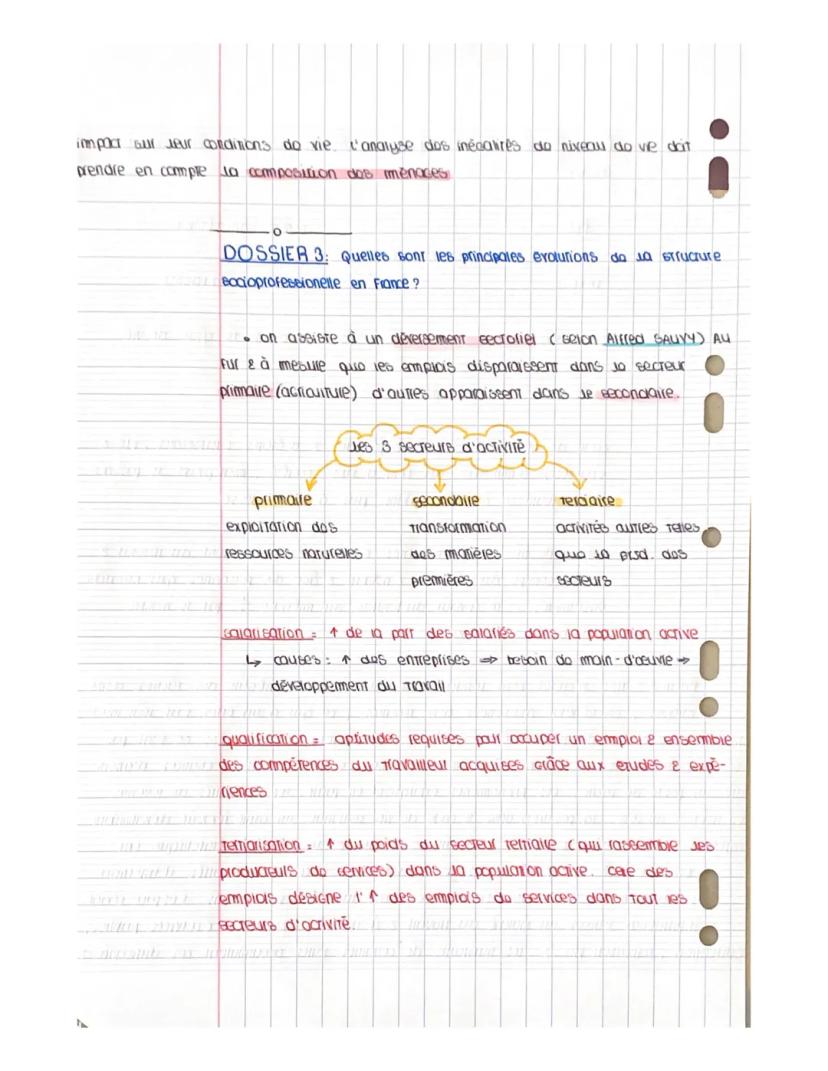 impact sur leur conditions de vie. L'analyse des inégalités de niveau de vie doit
prendre en compte la composition des ménages
DOSSIER 3: Quelles sont les principales évolutions de la structure
socioprofessionelle en France ?
• on assiste à un déversement sectoriel (selon Alfred SAUVY) Au
fur & à mesure que les emplois disparaissent dans le secteur
primaire (agriculture) d'autres apparaissent dans le secondaire.
les 3 secteurs d'activité
primaire secondaire Tertiaire
exploitation des transformation activités autres telles
ressources naturelles des matières que la prod. des
premières secteurs
salarisation = ↑ de la part des salariés dans la population active
↳ causes : ↑ des entreprises ⇒ besoin de main-d'œuvre →
développement du travail
qualification = aptitudes requises pour occuper un emploi & ensemble
des compétences du travailleur acquises grâce aux études & expé-
riences
tertiarisation = ↑ du poids du secteur tertiaire (qui rassemble les
producteurs de services) dans la population active. celle des
emplois désigne l'↑ des emplois de services dans tout les
secteurs d'activité.